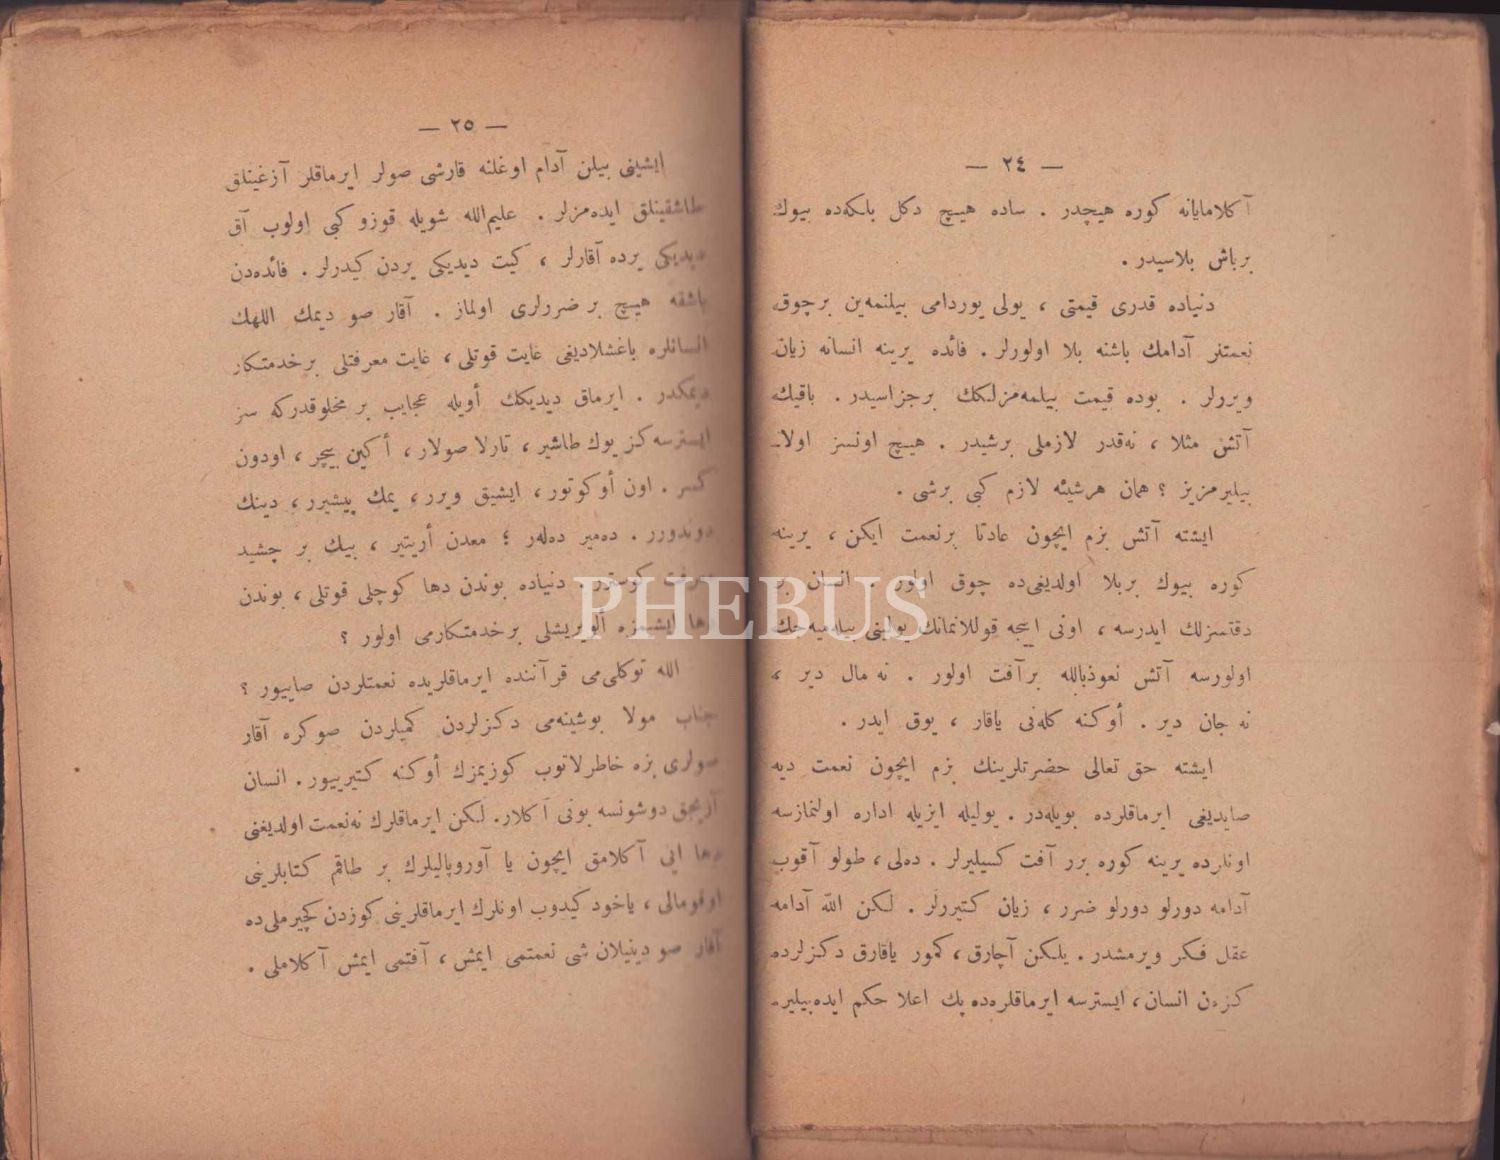 — ٢٤ —
آكلامايانه كوره هيچدر . ساده هيچ دكل بلكه‌ده بيوك
برباش بلاسيدر .
دنياده قدرى قيمتى ، يولى يوردامى بيلنمه‌ين برچوق
نعمتلر آدامك باشنه بلا اولورلر . فائده يرينه انسانه زيان
ويرولر . بوده قيمت بيلمه‌مزلكك برجزاسيدر . باقيكه
آتش مثلا ، نه‌قدر لازملى برشيدر . هيچ اونسز اولا‌
بيليرمزيز ؟ همان هرشيئه لازم كبى برشى .
ايشته آتش بزم ايچون عادتا برنعمت ايكن ، يرينه
كوره بيوك بربلا اولديغى‌ده چوق اولور . انسان بر
دقتسزلك ايدرسه ، اونى اييجه قوللانمانك يولينى بيله‌ميه‌جك
اولورسه آتش نعوذبالله برآفت اولور . نه مال دير ،
نه جان دير . أوكنه كله‌نى ياقار ، يوق ايدر .
ايشته حق تعالى حضرتلرينك بزم ايچون نعمت ديه
صايديغى ايرماقلرده بويله‌در . يوليله ايزيله اداره اولنمازسه
اونلرده يرينه كوره برر آفت كسيليرلر . ده‌لى ، طولو آقوب
آدامه دورلو دورلو ضرر ، زيان كتيررلر . لكن الله آدامه
عقل فكر ويرمشدر . يلكن آچارق ، كمور ياقارق دكزلرده
كزه‌ن انسان ، ايسترسه ايرماقلره‌ده پك اعلا حكم ايده‌بيلير .
— ٢٥ —
ايشينى بيلن آدام اوغلنه قارشى صولر ايرماقلر آزغينلق
طاشقينلق ايده‌مزلر . عليم‌الله شويله قوزو كبى اولوب آق
ديديكى يرده آقارلر ، كيت ديديكى يردن كيدرلر . فائده‌دن
باشقه هيچ بر ضررلرى اولماز . آقار صو ديمك اللهك
انسانلره باغشلاديغى غايت قوتلى ، غايت معرفتلى برخدمتكار
ديمكدر . ايرماق ديديكك أويله عجايب بر مخلوقدركه سز
ايسترسه‌كز يوك طاشير ، تارلا صولار ، أكين بيچر ، اودون
كسر . اون أوكوتور ، ايشيق ويرر ، يمك پيشيرر ، دينك
دوندورر . ده‌مير ده‌لەر ؛ معدن أريتير ، بيك بر چشيد
معرفت كوسترر . دنياده بوندن دها كوچلى قوتلى ، بوندن
دها ايشمزه ألويريشلى برخدمتكارمى اولور ؟
الله توكلى‌مى قرآننده ايرماقلريده نعمتلردن صاييور ؟
جناب مولا بوشينه‌مى دكزلردن كميلردن صوكره آقار
صولرى بزه خاطرلاتوب كوزيمزك أوكنه كتيرييور . انسان
آزيجق دوشونسه بونى آكلار . لكن ايرماقلرك نه‌نعمت اولديغنى
دها ايى آكلامق ايچون يا آوروپاليلرك بر طاقم كتابلرينى
اوقومالى ، ياخود كيدوب اونلرك ايرماقلرينى كوزدن كچيرملى‌ده
آقار صو دينيلان شى نعمتمى ايمش ، آفتمى ايمش آكلاملى .
PHEBUS